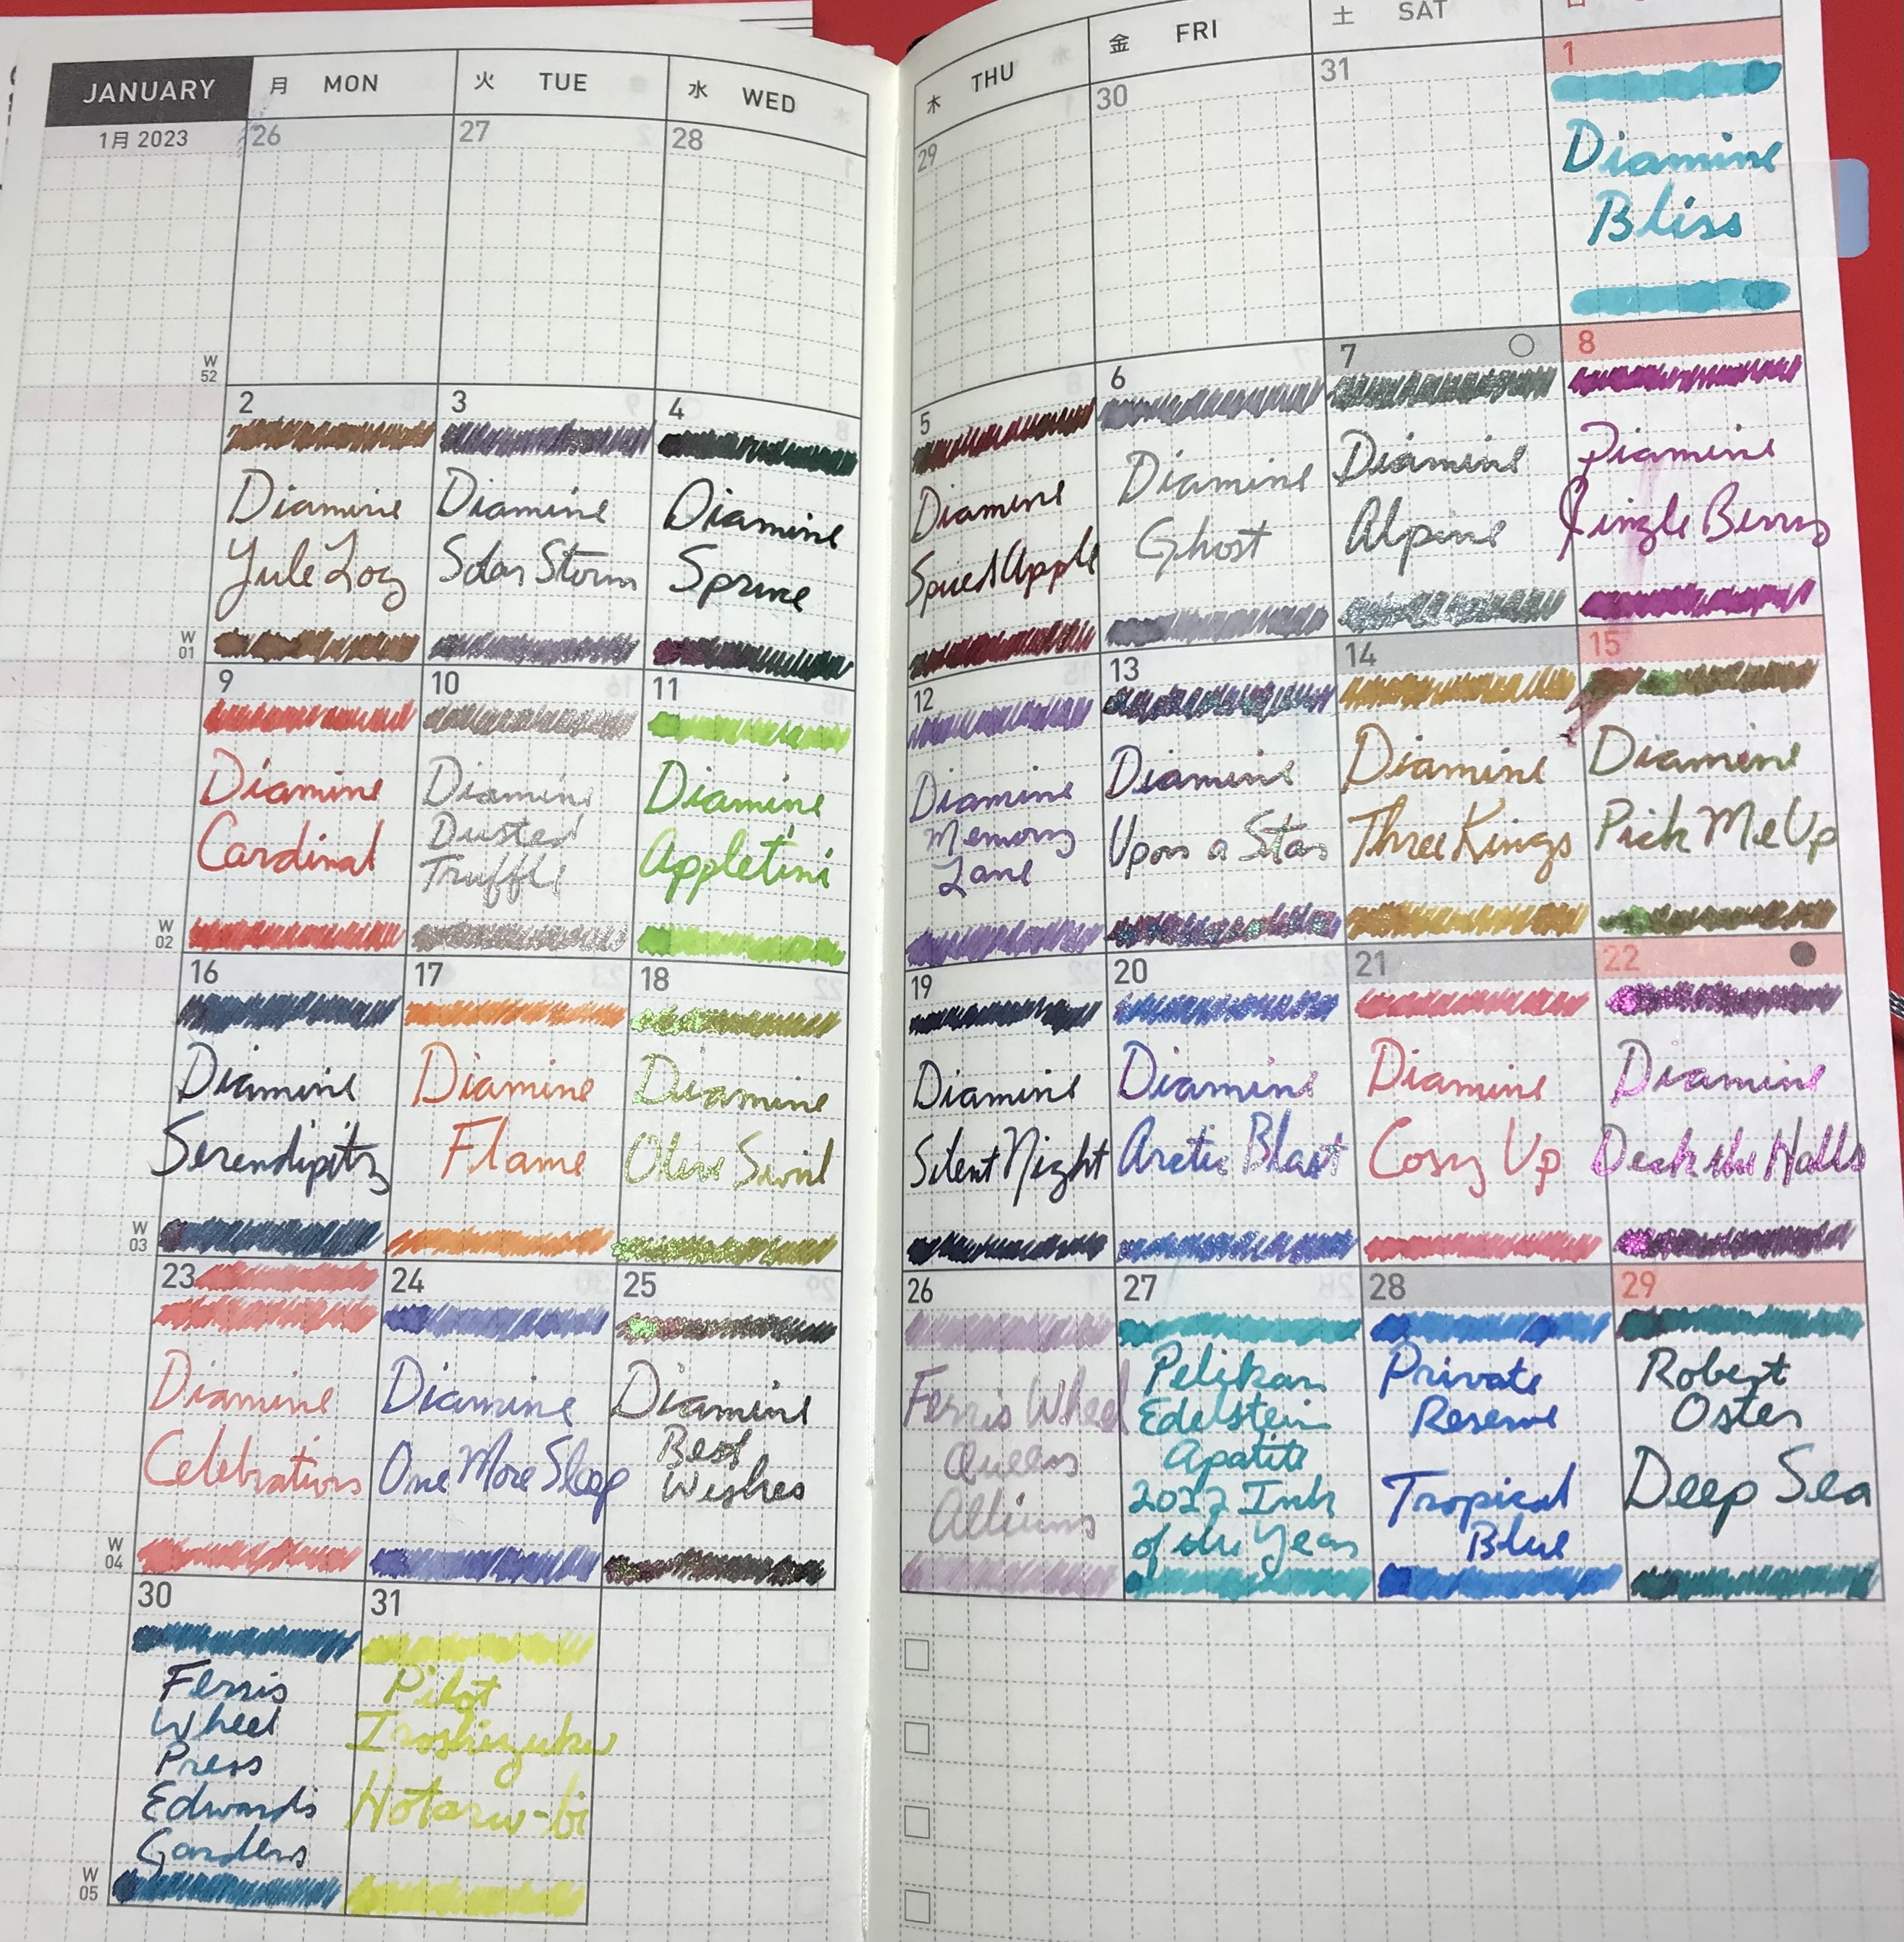 JANUARY
月 MON
火 TUE
水 WED
木 THU
金 FRI
土 SAT
1月 2023
26
27
28
29
30
31
1
Diamine
Bliss
W
52
2
Diamine
Yule Log
3
Diamine
Solar Storm
4
Diamine
Spruce
5
Diamine
Spiced Apple
6
Diamine
Ghost
7
Diamine
Alpine
8
Diamine
Jingle Berry
W
01
9
Diamine
Cardinal
10
Diamine
Dusted
Truffle
11
Diamine
Appletini
12
Diamine
Memory
Lane
13
Diamine
Upon a Star
14
Diamine
Three Kings
15
Diamine
Pick Me Up
W
02
16
Diamine
Serendipity
17
Diamine
Flame
18
Diamine
Olive Swirl
19
Diamine
Silent Night
20
Diamine
Arctic Blast
21
Diamine
Cosy Up
22
Diamine
Deck the Halls
W
03
23
Diamine
Celebration
24
Diamine
One More Sleep
25
Diamine
Best
Wishes
26
Ferris Wheel
Queens
Alliums
27
Pelikan
Edelstein
Apatite
2022 Ink
of the Year
28
Private
Reserve
Tropical
Blue
29
Robert
Oster
Deep Sea
W
04
30
Ferris
Wheel
Press
Edwards
Gardens
31
Pilot
Iroshizuku
Hotaru-bi
W
05